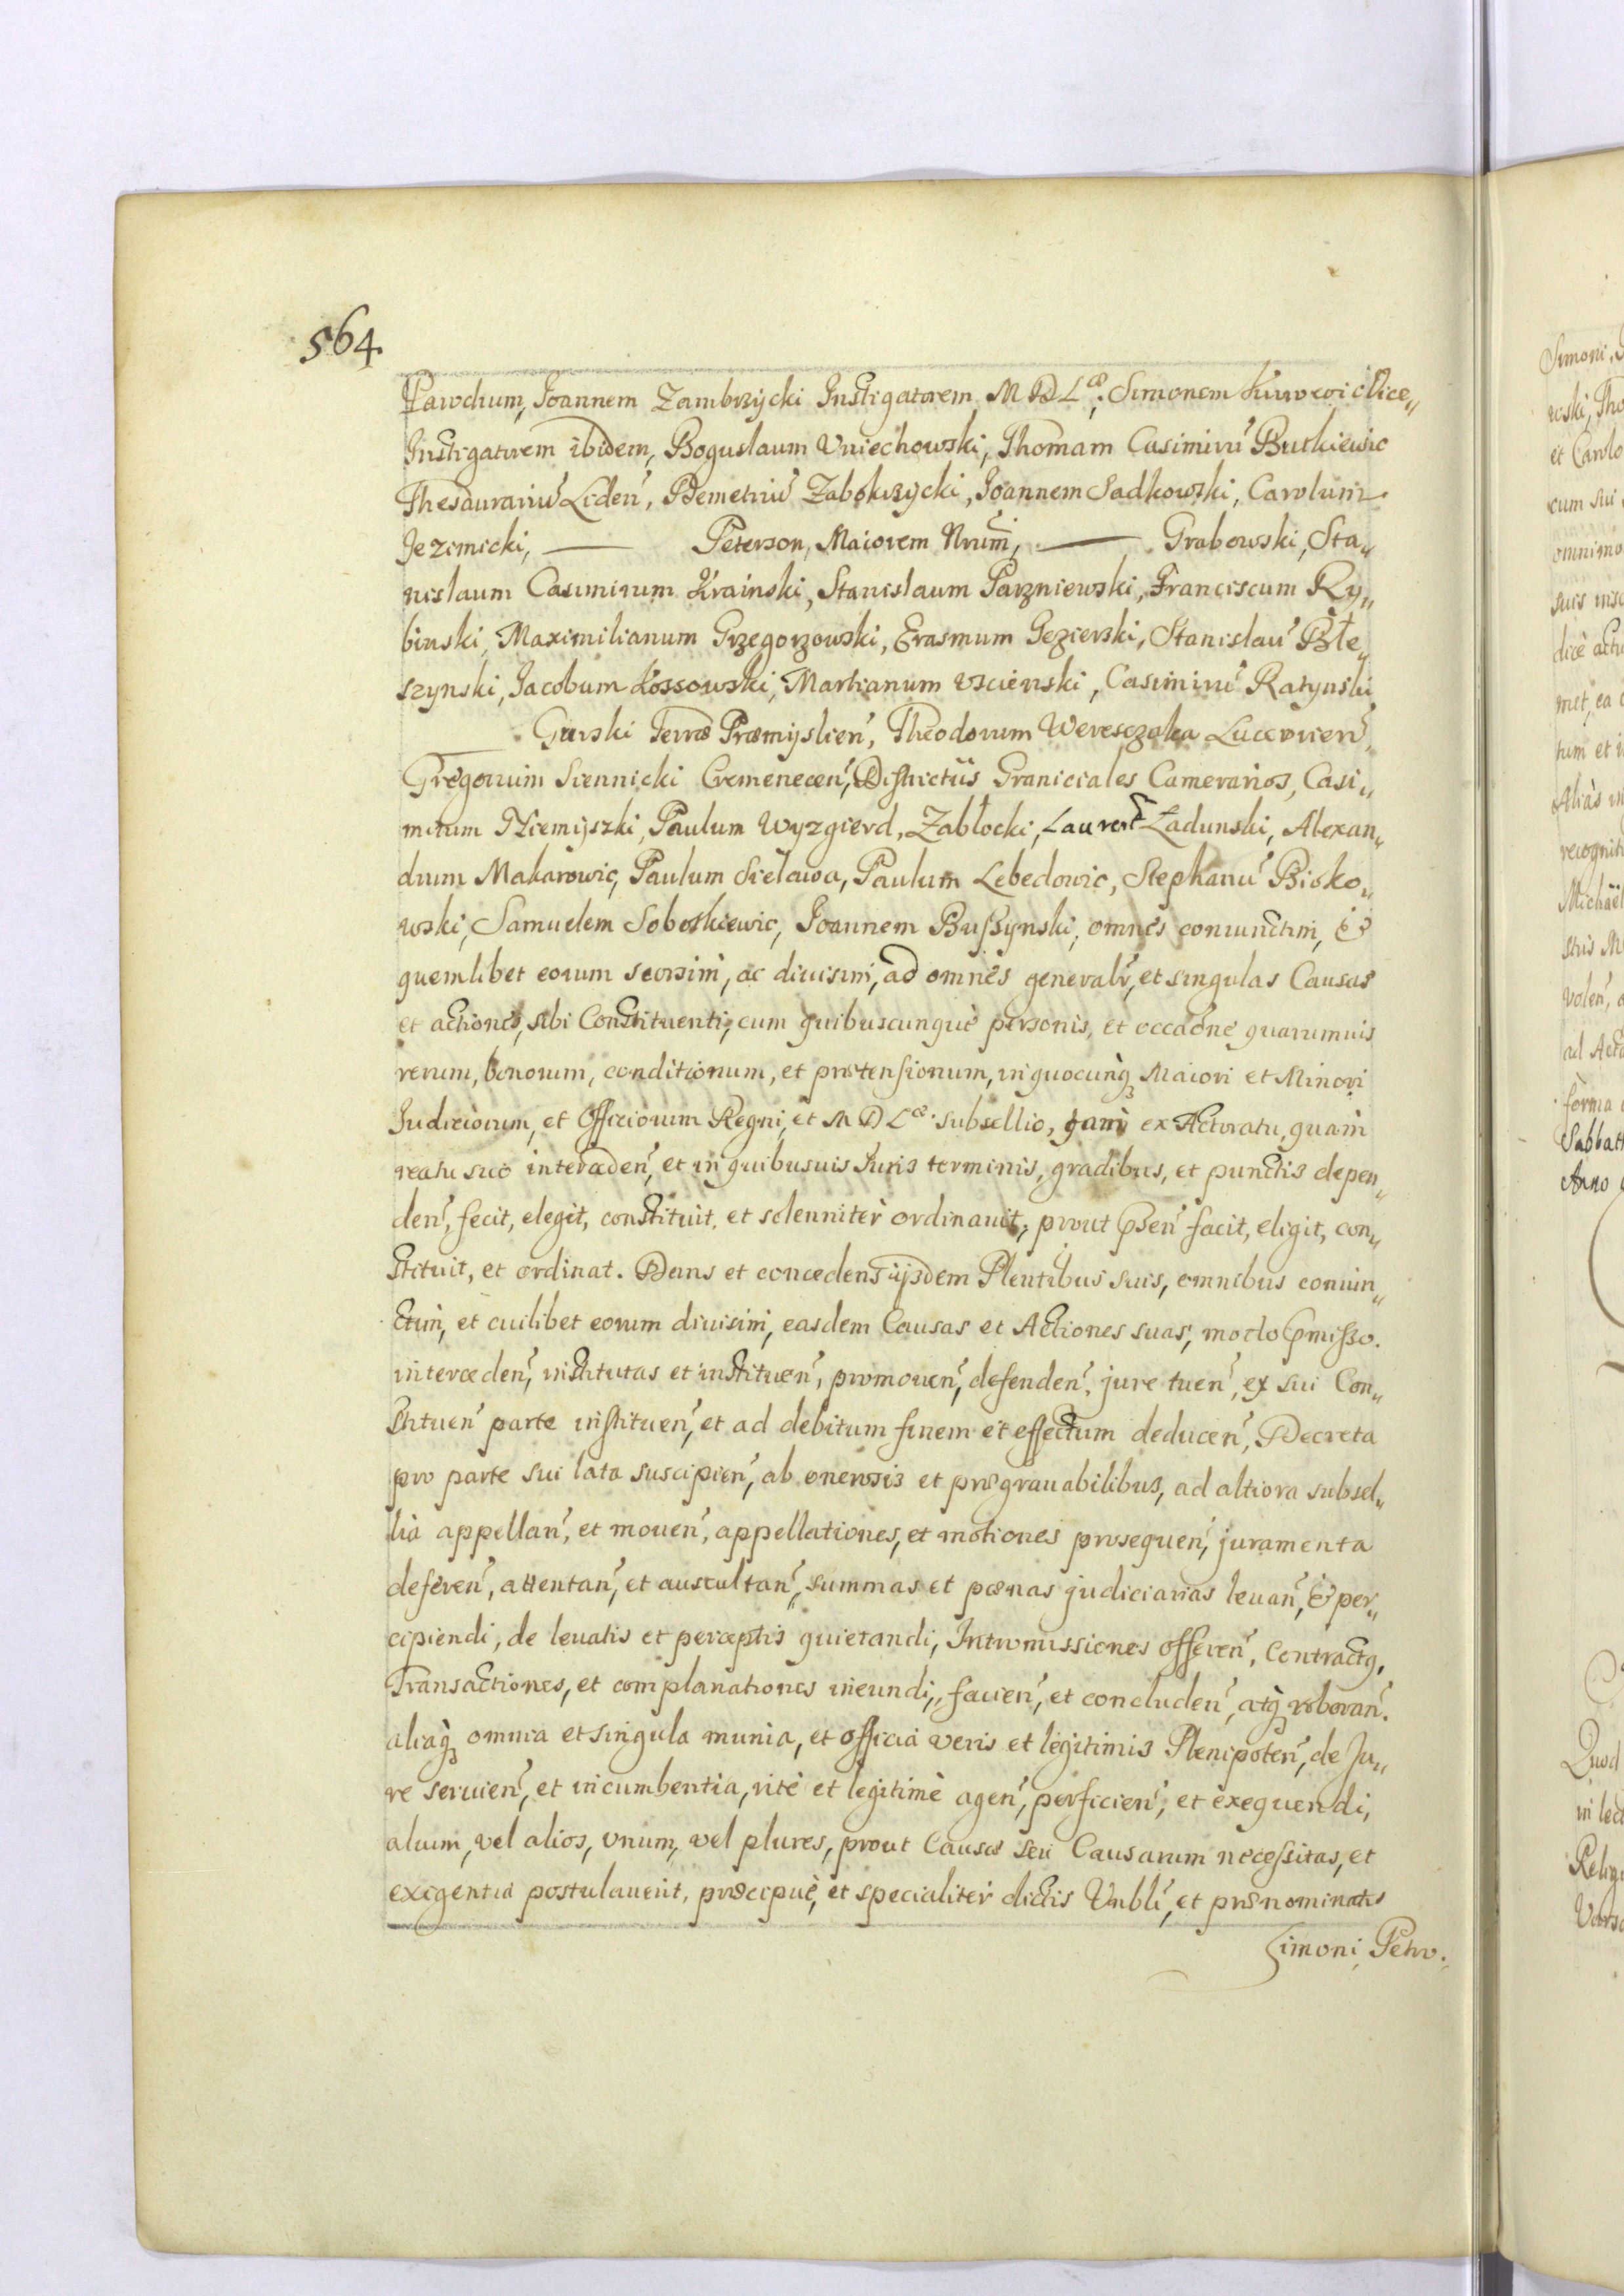 564.
Pawchum, Joannem Zambrzycki Instigatorem M D Læ, Simonem Kurowic Vice„
Instigatorem ibidem, Boguslaum Uniechowski, Thomam Casimirũ Butkiewic
Thesaurariũ Liden̓, Demetriũ Zabokrzycki, Joannem Sadkowski, Carolum
Jezirnicki, — Peterson, Maiorem Nrum, — Grabowski, Sta„
nislaum Casimirum Krainski, Stanislaum Parzniewski, Franciscum Ry„
binski, Maximilianum Grzegorzowski, Erasmum Jezierski, Stanislaũ Ple„
szynski, Jacobum Kossowski, Martianum Uscienski, Casimirũ Ratynski
Gurski Terræ Præmyslien̓, Theodorum Weresczaka Luceorien̓,
Gregorium Siennicki Cremenecen̓, Districtus Graniciales Camerarios, Casi„
mirum Niemyszki, Paulum Wyzgierd, Zabłocki, Laurent Ładunski, Alexan„
drum Makarowic, Paulum Sielawa, Paulum Lebedowic, Stephanũ Bioko„
wski, Samuelem Sobotkiewic, Joannem Buszynski, omnes coniunctim, &
quemlibet eorum seorsim, ac diuisim, ad omnes generalr̓, et singulas Causas
et actiones, sibi Constituenti, cum quibuscunque personis, et occaõne quarumuis
rerum, bonorum, conditionum, et prætensionum, in quocunq; Maiori et Minori
Judiciorum, et Officiorum Regni, et M D Læ. subsellio, tam ex Actoratu, quam
reatu suo interceden̓, et in quibusuis Juris terminis, gradibus, et punctis depen„
den̓, fecit, elegit, constituit, et solenniter ordinauit, prout pñsen̓ facit, eligit, con„
stituit, et ordinat. Dans et concedens ijsdem Plentibus suis, omnibus coniun„
ctim, et cuilibet eorum diuisim, easdem Causas et Actiones suas, modo pmisso.
interceden̓, institutas et instituen̓, promouen̓, defenden̓, jure tuen̓, ex sui Con„
stituen̓ parte instituen̓, et ad debitum finem et effectum deducen̓, Decreta
pro parte sui lata suscipien̓, ab onerosis et prægrauabilibus, ad altiora subsel„
lia appellan̓, et mouen̓, appellationes, et motiones prosequen̓, juramenta
deferen̓, attentan̓, et auscultan̓, summas et pœnas judiciarias leuan̓, & per„
cipiendi, de leuatis et perceptis quietandi, Intromissiones offeren̓, Contractq,
Transactiones, et complanationes ineundi, facien̓, et concluden̓, atq; roboran̓.
aliaq; omnia et singula munia, et officia veris et legitimis Plenipoten̓, de Ju„
re seruien̓, et incumbentia, rite et legitimè agen̓, perficien̓, et exequendi,
alium, vel alios, unum, vel plures, prout Causæ seu Causarum necessitas, et
exigentia postulauerit, præcipuè, et specialiter dictis Vnbli, et prænominatis
Simoni, Petro.